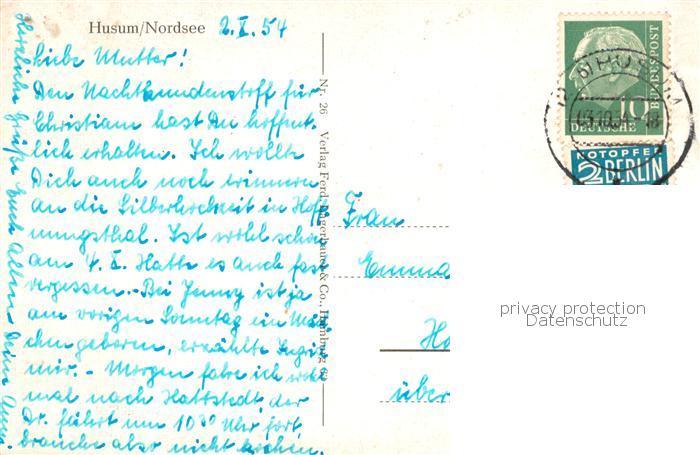 Husum/Nordsee 2.X.54
Liebe Mutter!
Den Nachthemdenstoff für
Christiam hast Du hoffent-
lich erhalten. Ich wollte
Dich auch noch erinnern
an die Silberhochzeit in Hoff-
nungsthal. Ist wohl schon
am 4. X. Hatte es auch fast
vergessen. - Bei Jenny ist ja
am vorigen Sonntag ein Mäd-
chen geboren, erzählte Ingrid
mir. - Morgen fahre ich wohl
mal nach Hattstedt, der
Dr. fährt um 10³⁰ Uhr fort,
brauche also nicht kochen.
Herzliche Grüße Euch Allen Deine Anne.
Nr. 26 Verlag Ferd. Lagerbauer & Co., Hamburg
Frau
Emma
Ho
über
HUSUM
03.10.54-18
10
DEUTSCHE
BUNDESPOST
NOTOPFER
2 BERLIN
privacy protection
Datenschutz